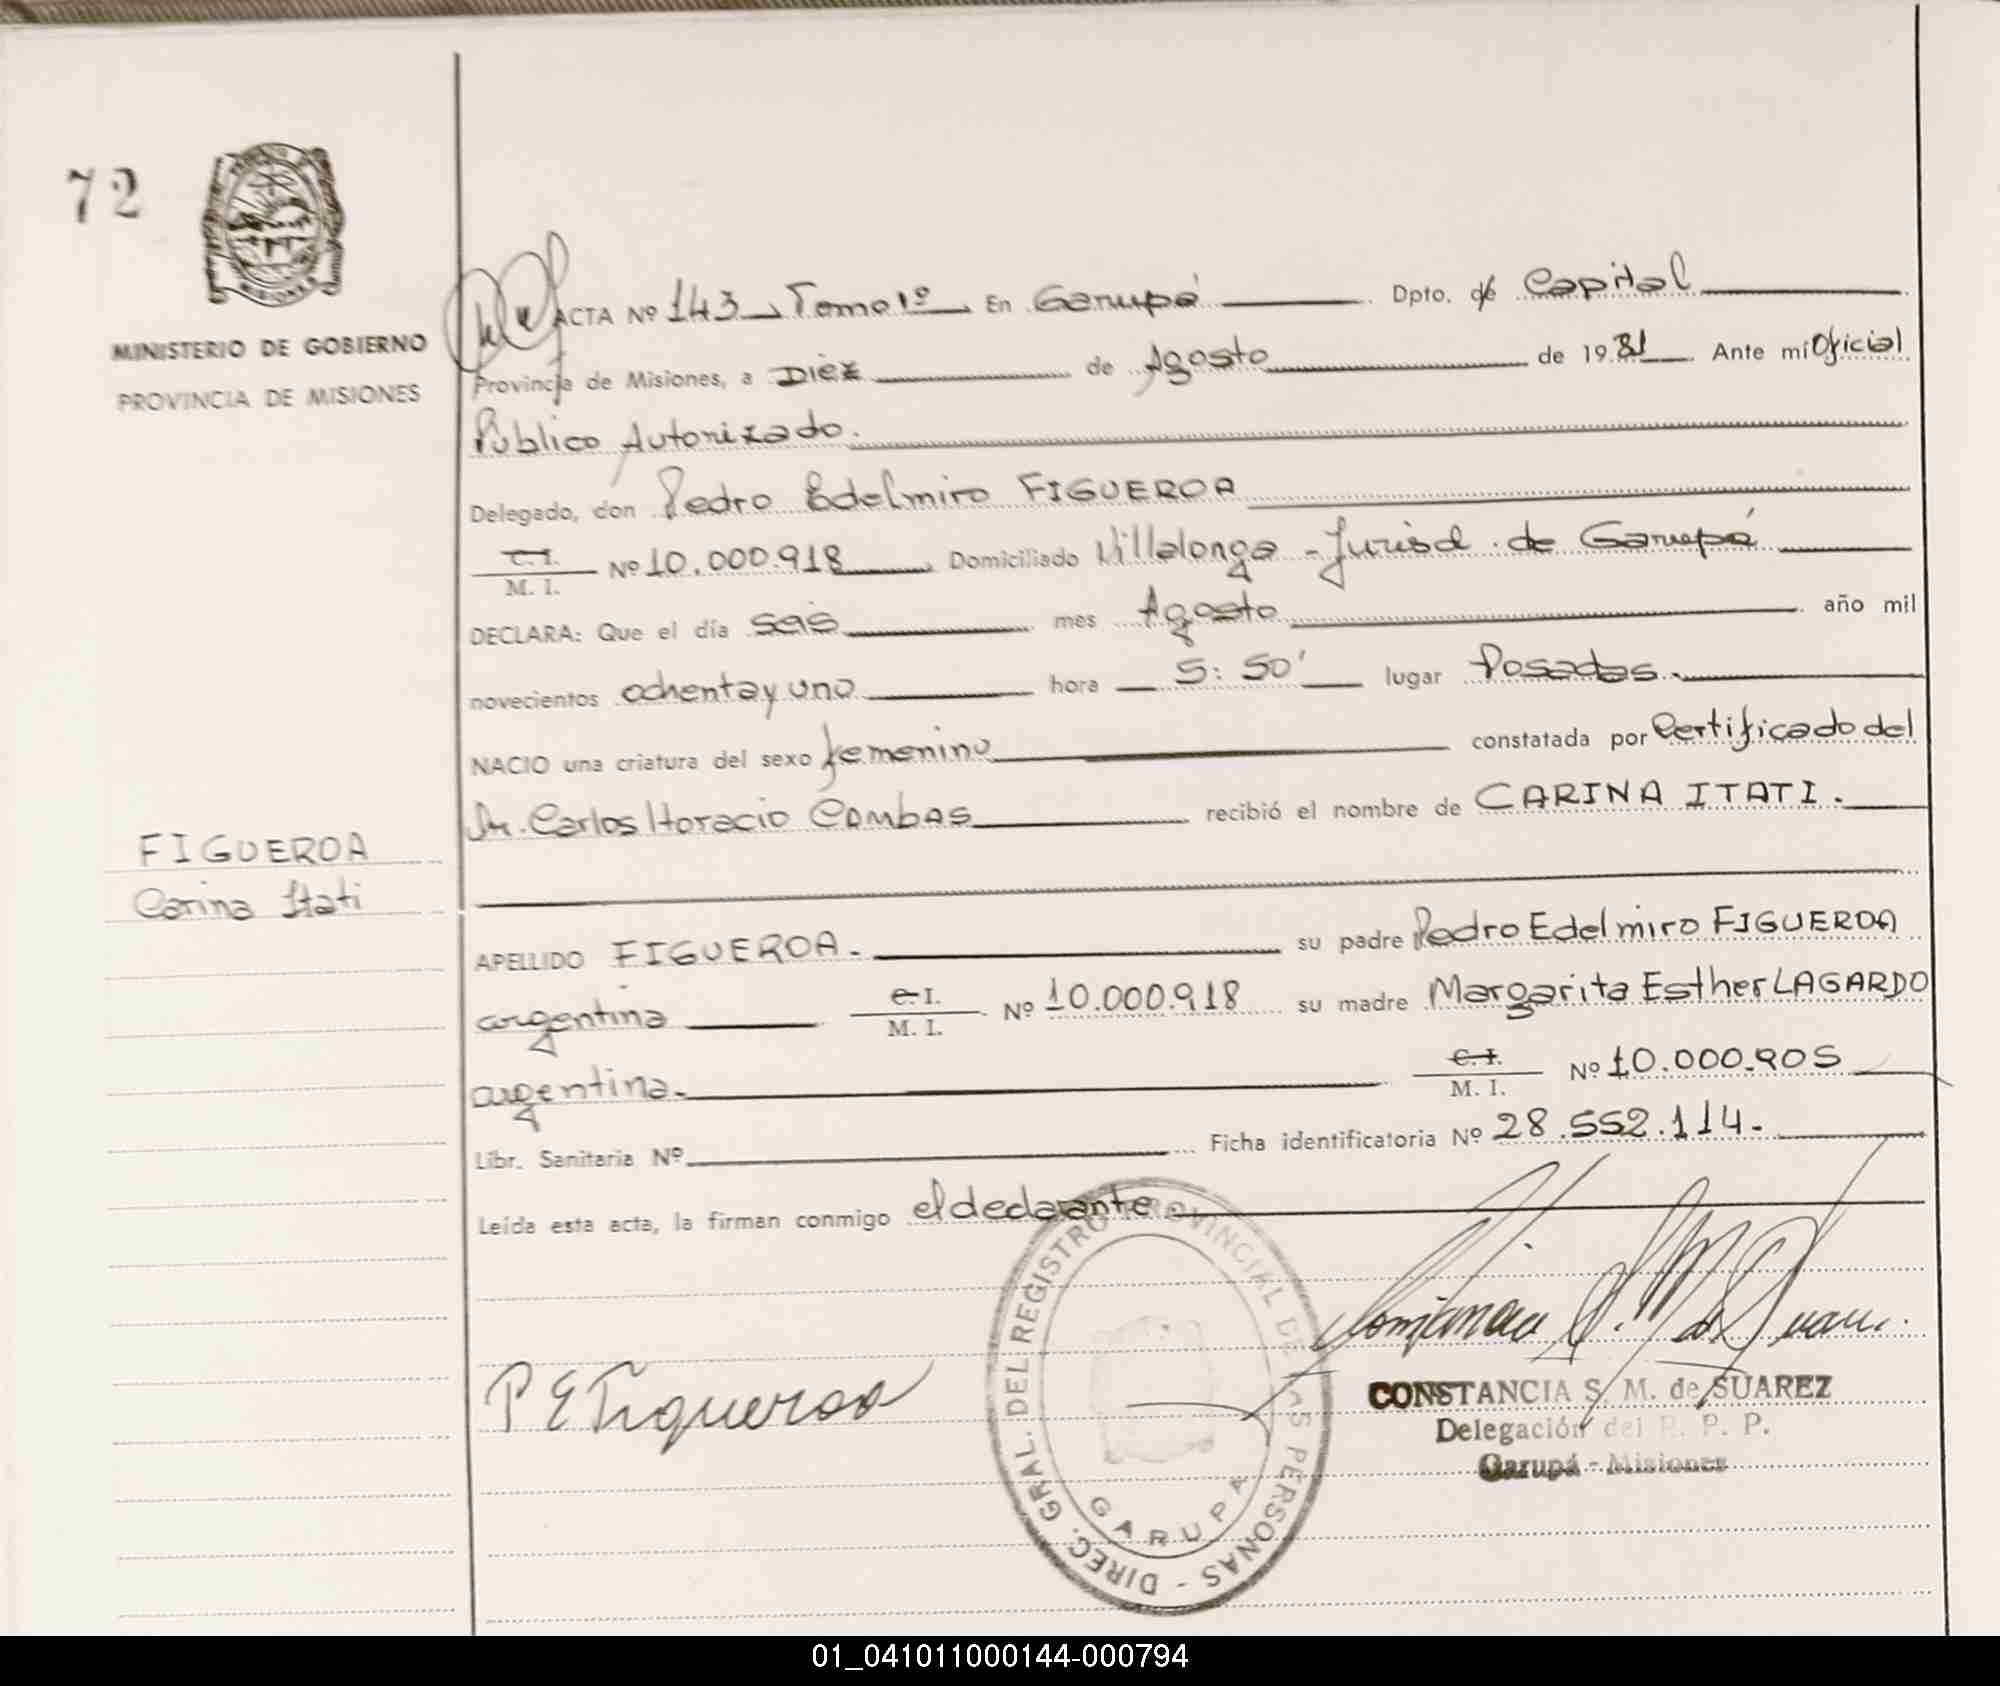 72
MINISTERIO DE GOBIERNO
PROVINCIA DE MISIONES
MISIONES
ACTA Nº 143 Tomo 1º En Garupá Dpto. de Capital
Provincia de Misiones, a Diez de Agosto de 1981 Ante mí Oficial
Público Autorizado.
Delegado, don Pedro Edelmiro FIGUEROA
C. I.
M. I. Nº 10.000.918 Domiciliado Villalonga - Jurisd. de Garupá
DECLARA: Que el día seis mes Agosto año mil
novecientos ochenta y uno hora 5:50' lugar Posadas.
NACIO una criatura del sexo femenino constatada por Certificado del
Dr. Carlos Horacio CAMBAS recibió el nombre de CARINA ITATI.
FIGUEROA
Carina Itati
APELLIDO FIGUEROA. su padre Pedro Edelmiro FIGUEROA
argentina C. I.
M. I. Nº 10.000.918 su madre Margarita Esther LAGARDO
argentina. C. I.
M. I. Nº 10.000.905
Libr. Sanitaria Nº Ficha identificatoria Nº 28.552.114.
Leída esta acta, la firman conmigo el declarante.
P E Figueroa
DIREC. GRAL. DEL REGISTRO PROVINCIAL DE LAS PERSONAS -
GARUPA
CONSTANCIA S. M. de SUAREZ
Delegación del R. P. P.
Garupá - Misiones
01_041011000144-000794